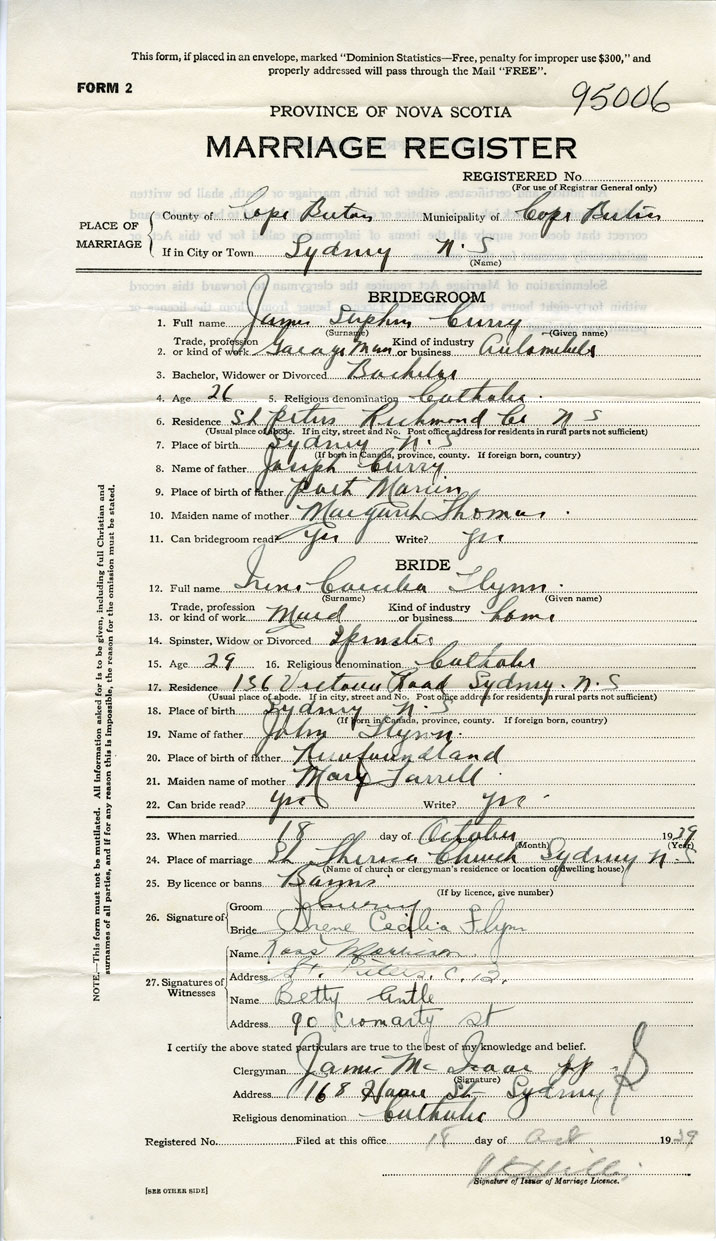 This form, if placed in an envelope, marked "Dominion Statistics—Free, penalty for improper use $300," and
properly addressed will pass through the Mail "FREE".
FORM 2
95006
PROVINCE OF NOVA SCOTIA
MARRIAGE REGISTER
REGISTERED No.
(For use of Registrar General only)
PLACE OF MARRIAGE
County of Cape Breton Municipality of Cape Breton
If in City or Town Sydney N. S
(Name)
BRIDEGROOM
1. Full name James Curry
(Surname) (Given name)
2. Trade, profession or kind of work Garage Man Kind of industry or business Automobiles
3. Bachelor, Widower or Divorced Bachelor
4. Age 26 5. Religious denomination Catholic
6. Residence St Peters Richmond Co N S
(Usual place of abode. If in city, street and No. Post office address for residents in rural parts not sufficient)
7. Place of birth Sydney N. S
(If born in Canada, province, county. If foreign born, country)
8. Name of father Joseph Curry
9. Place of birth of father Port
10. Maiden name of mother Margaret Thomas
11. Can bridegroom read? Yes Write? yes
BRIDE
12. Full name Irene Flynn
(Surname) (Given name)
13. Trade, profession or kind of work Maid Kind of industry or business home
14. Spinster, Widow or Divorced Spinster
15. Age 29 16. Religious denomination Catholic
17. Residence 136 Victoria Road Sydney. N. S
(Usual place of abode. If in city, street and No. Post office address for residents in rural parts not sufficient)
18. Place of birth Sydney N. S
(If born in Canada, province, county. If foreign born, country)
19. Name of father John Flynn
20. Place of birth of father Newfoundland
21. Maiden name of mother Mary Farrell
22. Can bride read? yes Write? yes
23. When married 18 day of October 1939
(Month) (Year)
24. Place of marriage St Theresa Church Sydney N. S
(Name of church or clergyman's residence or location of dwelling house)
25. By licence or banns Banns
(If by licence, give number)
26. Signature of
Groom J Curry
Bride Irene Cecilia Flynn
27. Signatures of Witnesses
Name Morrison
Address St. Peters. C. B.
Name Betty Antle
Address 90 Cromarty St
I certify the above stated particulars are true to the best of my knowledge and belief.
Clergyman James Mc Isaac pp
(Signature)
Address 168 St Sydney
Religious denomination Catholic
Registered No. Filed at this office 18 day of Oct 1939
Signature of Issuer of Marriage Licence.
[SEE OTHER SIDE]
NOTE.—This form must not be mutilated. All information asked for is to be given, including full Christian and
surnames of all parties, and if for any reason this is impossible, the reason for the omission must be stated.